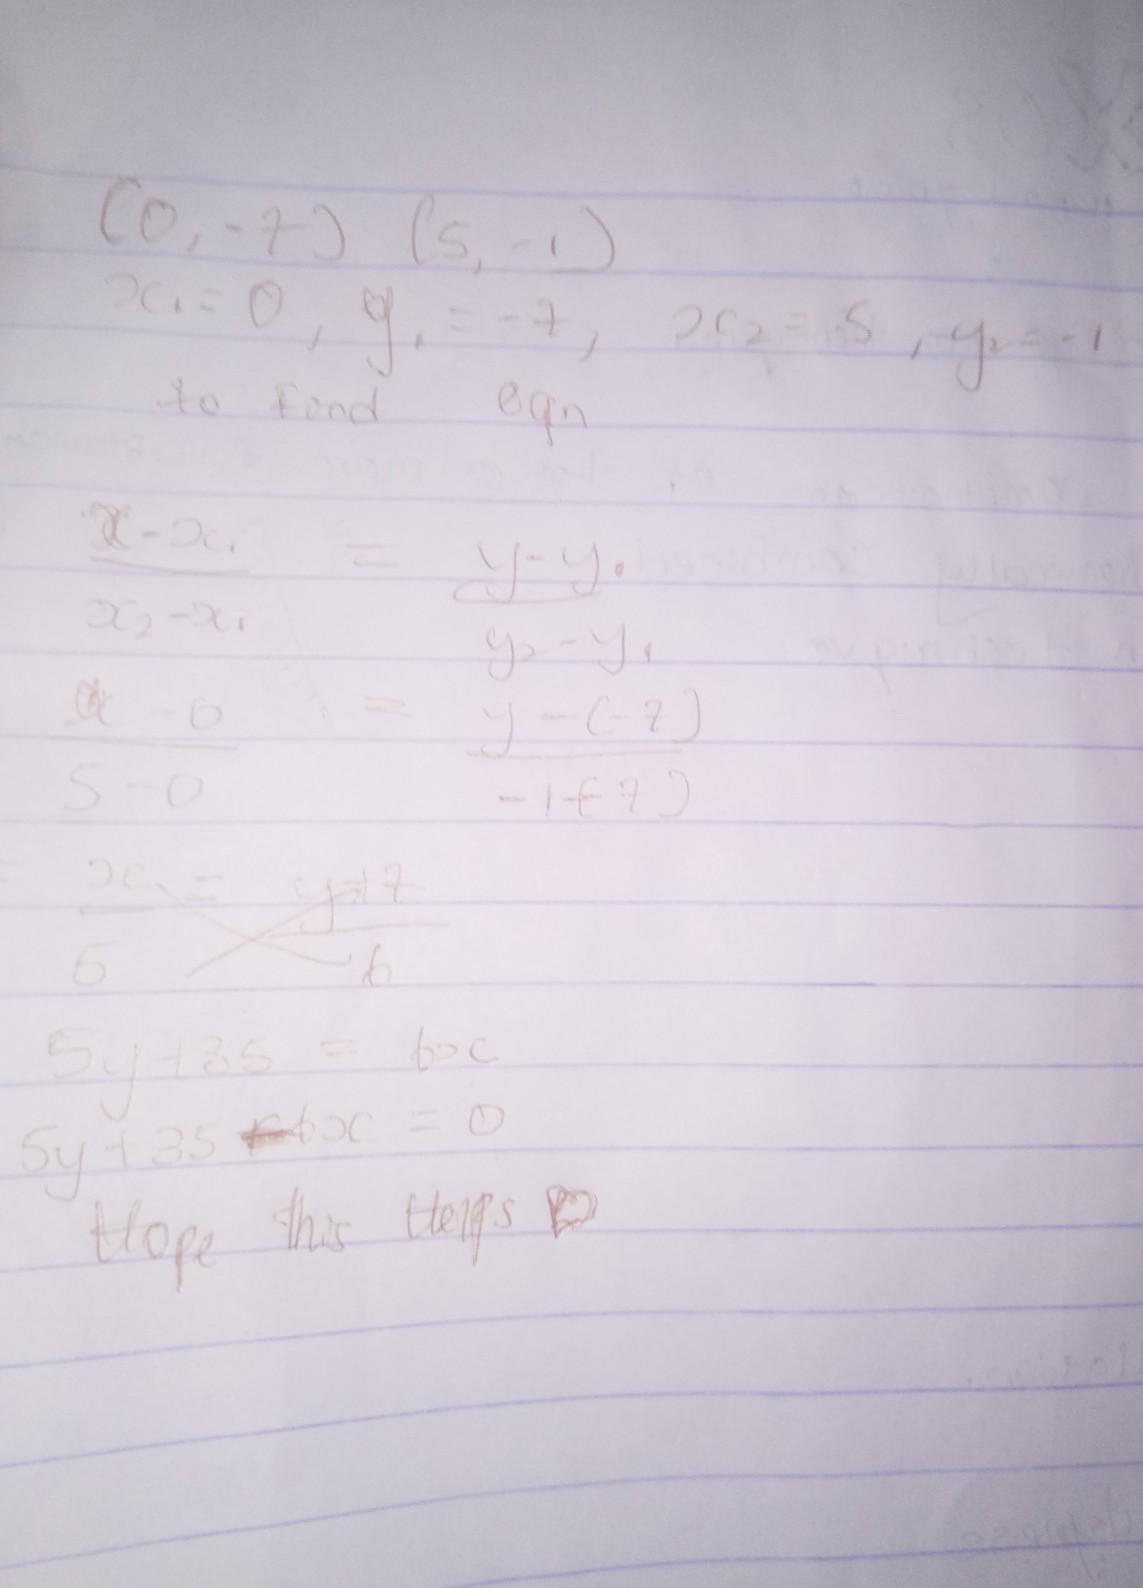 (0, -7) (5, -1)
x₁ = 0, y₁ = -7, x₂ = 5, y₂ = -1
to find eqn
x - x₁ = y - y₁
x₂ - x₁ y₂ - y₁
x - 0 = y - (-7)
5 - 0 -1 - (-7)
= x = y + 7
5 6
5y + 35 = 6x
5y + 35 - 6x = 0
Hope this Helps